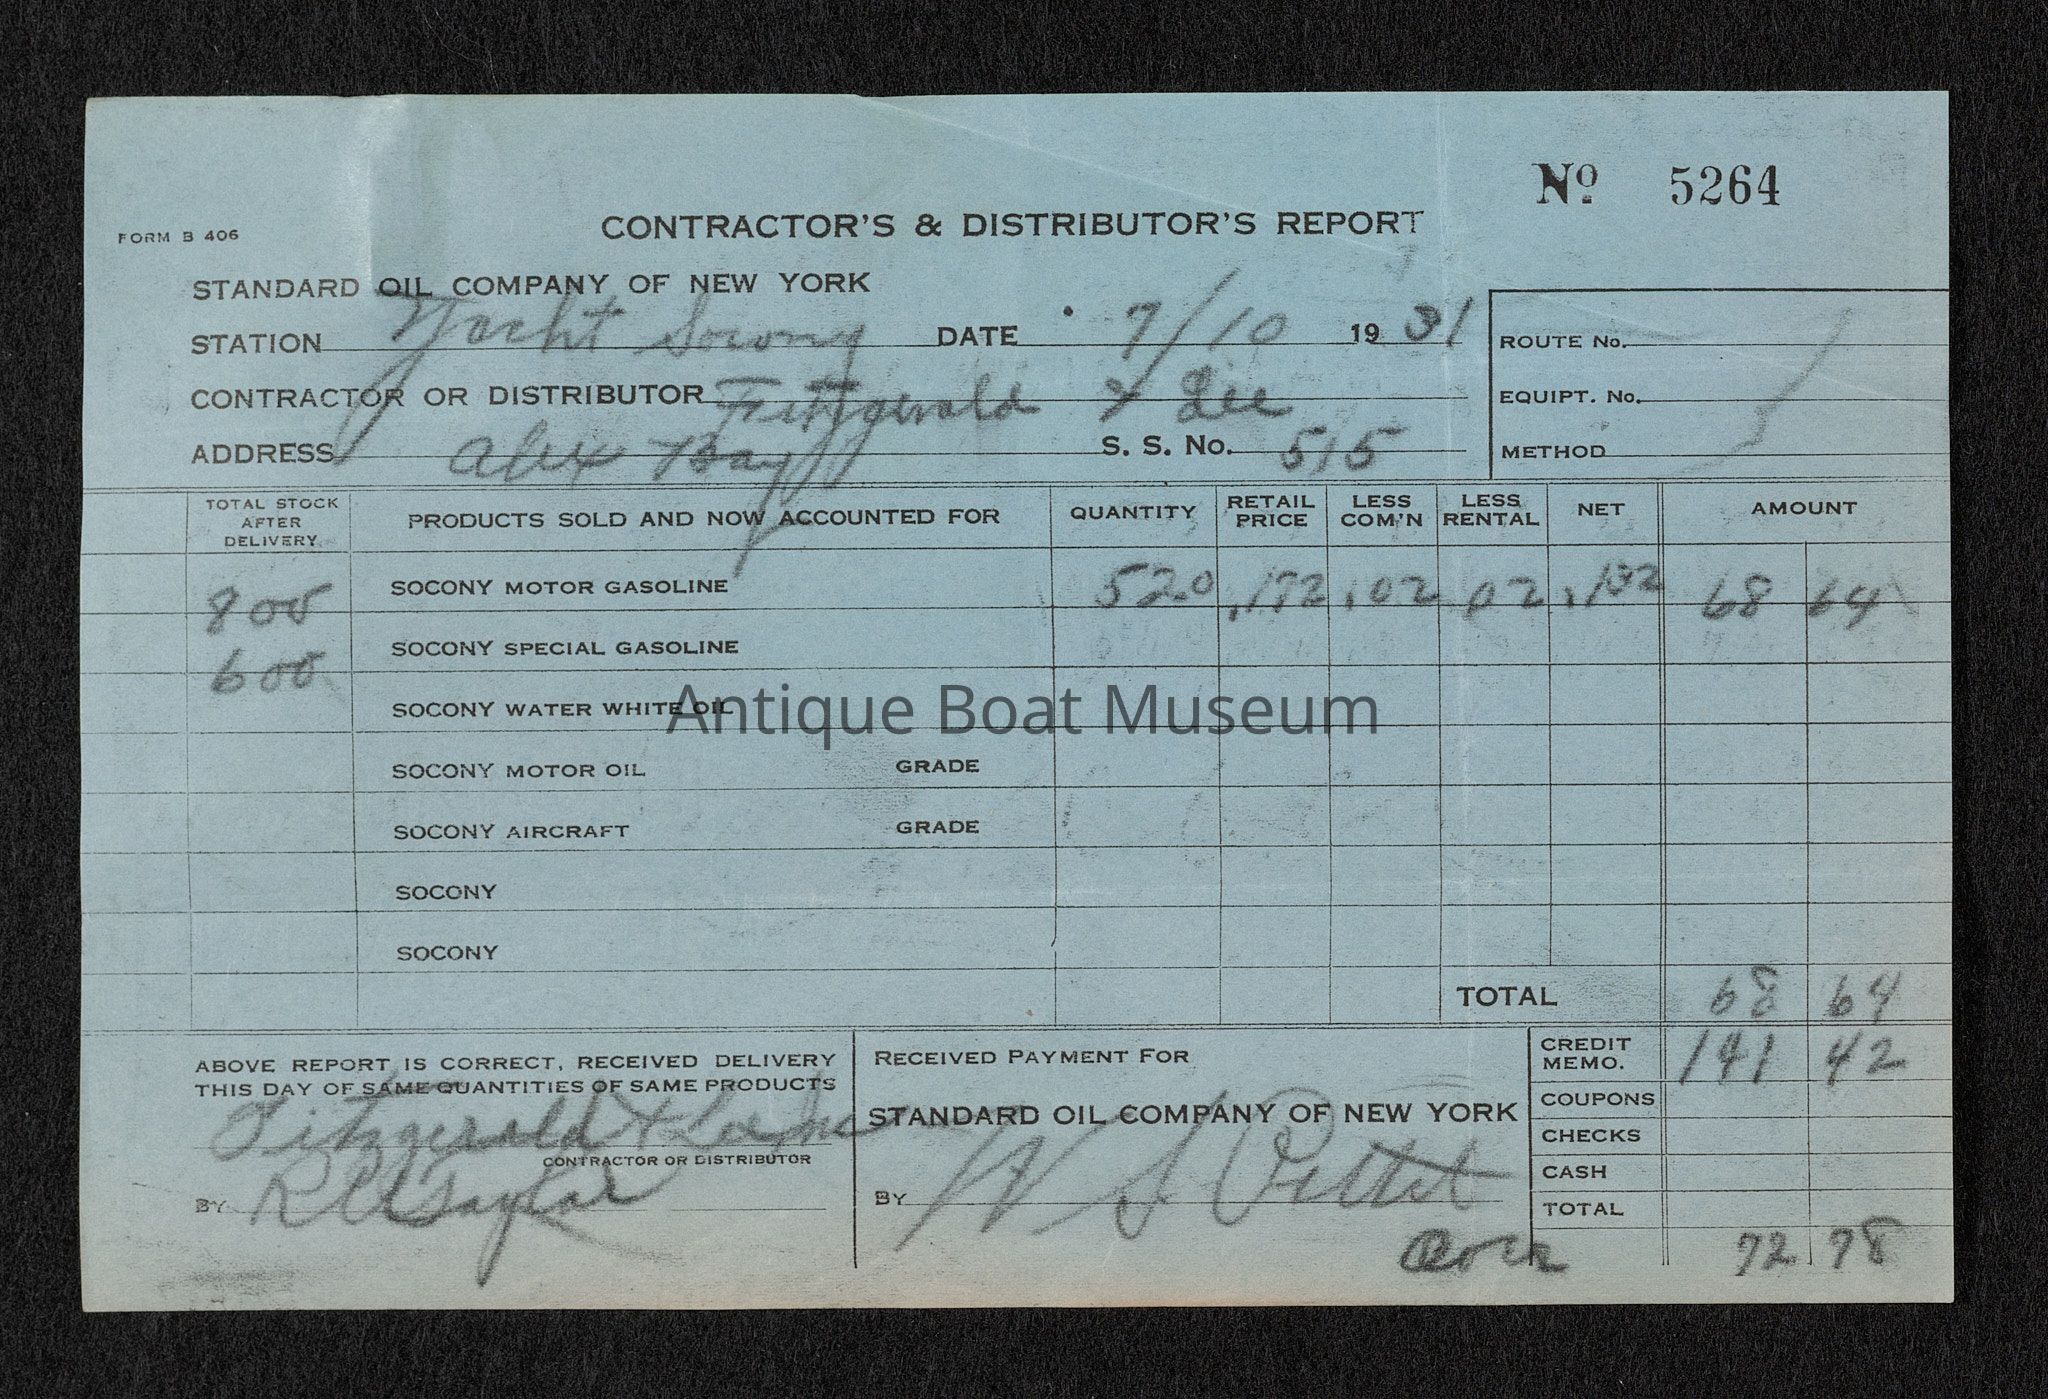 Nº 5264
FORM B 406
CONTRACTOR'S & DISTRIBUTOR'S REPORT
STANDARD OIL COMPANY OF NEW YORK
STATION Yacht Socony DATE 7/10 1931
ROUTE No.
CONTRACTOR OR DISTRIBUTOR Fitzgerald & Lee
EQUIPT. No.
ADDRESS Alex Bay S. S. No. 515
METHOD
TOTAL STOCK AFTER DELIVERY PRODUCTS SOLD AND NOW ACCOUNTED FOR QUANTITY RETAIL PRICE LESS COM'N LESS RENTAL NET AMOUNT
800 SOCONY MOTOR GASOLINE 520 .172 .02 02 .132 68 64
600 SOCONY SPECIAL GASOLINE
SOCONY WATER WHITE OIL
Antique Boat Museum
SOCONY MOTOR OIL GRADE
SOCONY AIRCRAFT GRADE
SOCONY
SOCONY
TOTAL 68 64
ABOVE REPORT IS CORRECT, RECEIVED DELIVERY
THIS DAY OF SAME QUANTITIES OF SAME PRODUCTS
Fitzgerald & Lee Inc
CONTRACTOR OR DISTRIBUTOR
BY Taylor
RECEIVED PAYMENT FOR
STANDARD OIL COMPANY OF NEW YORK
BY W S Pettit
CREDIT MEMO. 141 42
COUPONS
CHECKS
CASH
TOTAL
72 78